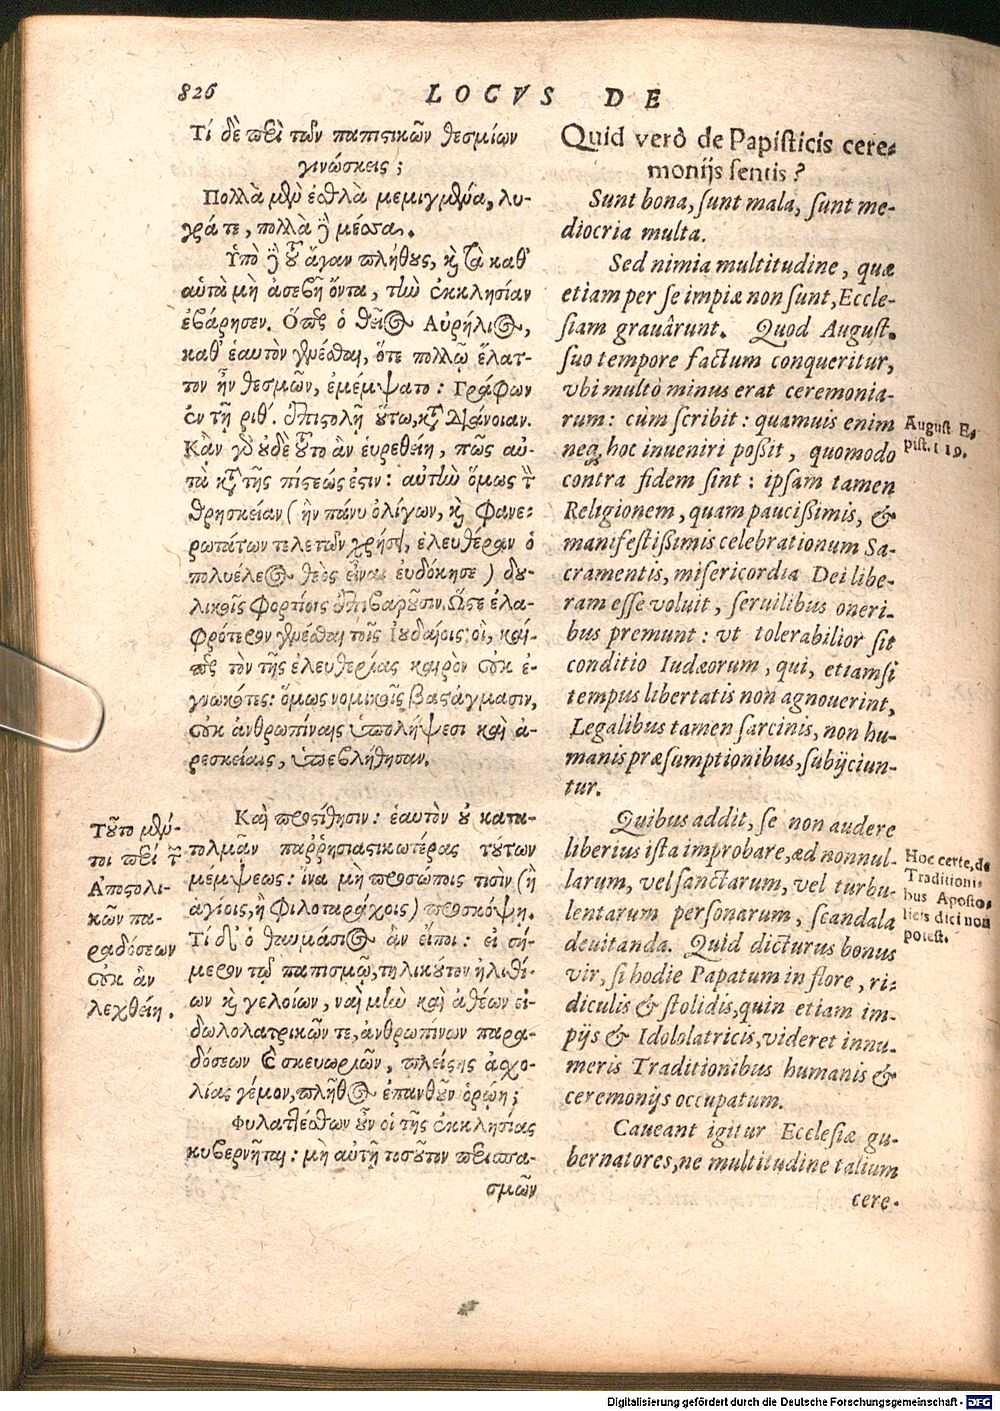 826
LOCVS DE
Τί δὲ περὶ τῶν παπιστικῶν θεσμίων
γινώσκεις;
Πολλὰ μὲν ἐσθλὰ μεμιγμένα, λυ-
γρά τε, πολλὰ δὲ μέσσα.
Ὑπὸ δὲ τοῦ ἄγαν πλήθους, καὶ τὰ καθ'
αὑτὰ μὴ ἀσεβῆ ὄντα, τὴν ἐκκλησίαν
ἐβάρησεν. Ὅπερ ὁ θεῖος Αὐρήλιος,
καθ' ἑαυτὸν γενέσθαι, ὅτε πολλῷ ἔλατ-
τον ἦν θεσμῶν, ἐμέμψατο: Γράφων
ἐν τῇ ριθ'. ἐπιστολῇ οὕτω, κατὰ διάνοιαν.
Κἂν γὰρ οὐδὲ τοῦτο ἂν εὑρεθείη, πῶς αὐ-
τὰ κατὰ τῆς πίστεώς ἐστιν: αὐτὴν ὅμως τὴν
θρησκείαν (ἣν πάνυ ὀλίγων, καὶ φανε-
ρωτάτων τελετῶν χρήσει, ἐλευθέραν ὁ
πολυέλεος θεὸς εἶναι εὐδόκησε) δου-
λικοῖς φορτίοις ἐπιβαροῦσιν. Ὥστε ἐλα-
φρότερον γενέσθαι τοῖς Ἰουδαίοις: οἳ, καί-
περ τὸν τῆς ἐλευθερίας καιρὸν οὐκ ἐ-
γνωκότες: ὅμως νομικοῖς βαστάγμασιν,
οὐκ ἀνθρωπίναις ὑπολήψεσι καὶ ἀ-
ρεσκείαις, ὑπεβλήθησαν.
Καὶ προστίθησιν: ἑαυτὸν οὐ κατα-
τολμᾶν παῤῥησιαστικωτέρας τούτων
μεμψεως: ἵνα μὴ προσώποις τισὶν (ἢ
ἁγίοις, ἢ φιλοταράχοις) προσκόψῃ.
Τί δ' ὁ θαυμάσιος ἂν εἴποι: εἰ σή-
μερον τῷ παπισμῷ, τηλικούτον ἠλιθί-
ων καὶ γελοίων, ναὶ μὴν καὶ ἀθέων εἰ-
δωλολατρικῶν τε, ἀνθρωπίνων παρα-
δόσεων καὶ σκευωριῶν, πλείστης ἀσχο-
λίας γέμον, πλῆθος ἐπανθοῦν ὁρῴη;
Φυλαττέσθων οὖν οἱ τῆς ἐκκλησίας
κυβερνῆται: μὴ αὐτῇ τοσοῦτον περισπα-
σμῶν
Τοῦτο μέν-
τοι περὶ τῶν
Ἀποστολι-
κῶν πα-
ραδόσεων
οὐκ ἂν
λεχθείη.
Quid verò de Papisticis cere-
monijs sentis?
Sunt bona, sunt mala, sunt me-
diocria multa.
Sed nimia multitudine, quæ
etiam per se impiæ non sunt, Eccle-
siam grauârunt. Quod August.
suo tempore factum conqueritur,
vbi multò minus erat ceremonia-
rum: cùm scribit: quamuis enim
neq; hoc inueniri possit, quomodo
contra fidem sint: ipsam tamen
Religionem, quam paucissimis, &
manifestissimis celebrationum Sa-
cramentis, misericordia Dei libe-
ram esse voluit, seruilibus oneri-
bus premunt: vt tolerabilior sit
conditio Iudæorum, qui, etiamsi
tempus libertatis non agnouerint,
Legalibus tamen sarcinis, non hu-
manis præsumptionibus, subijciun-
tur.
Quibus addit, se non audere
liberius ista improbare, ad nonnul-
larum, vel sanctarum, vel turbu-
lentarum personarum, scandala
deuitanda. Quid dicturus bonus
vir, si hodie Papatum in flore, ri-
diculis & stolidis, quin etiam im-
pijs & Idololatricis, videret innu-
meris Traditionibus humanis &
ceremonijs occupatum.
Caueant igitur Ecclesiæ gu-
bernatores, ne multitudine talium
cere-
August. E-
pist. 119.
Hoc certe, de
Traditioni-
bus Aposto-
licis dici non
potest.
Digitalisierung gefördert durch die Deutsche Forschungsgemeinschaft - DFG